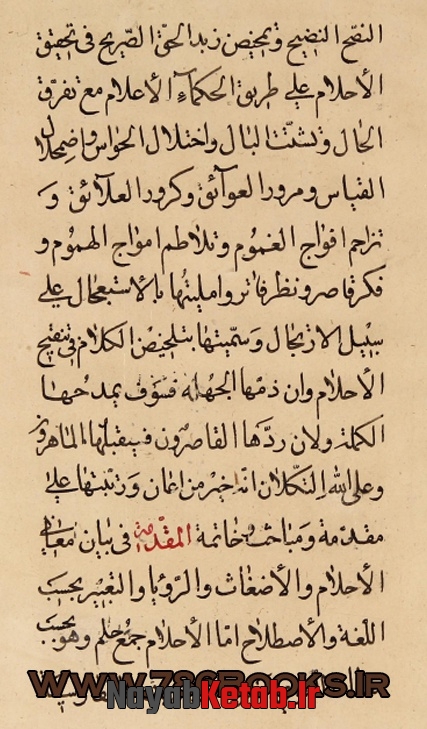 النقح النضيح وتمحيض زبد الحق الصريح في تحقيق
الأحلام على طريق الحكماء الأعلام مع تفرق
الحال وتشتت البال واختلال الحواس واضمحلال
القياس ومرور العوائق وكرور العلائق و
تزاحم افواج الغموم وتلاطم امواج الهموم و
فكر قاصر ونظر فاتر وامليتها بالاستعجال على
سبيل الارتجال وسميتها بتلخيص الكلام في تنقيح
الأحلام وان ذمها الجهلة فسوف يمدحها
الكملة ولان ردها القاصرون فسيقبلها الماهرون
وعلى الله التكلان انه خير من اعان ورتبتها على
مقدمة ومباحث وخاتمة المقدمة في بيان معاني
الأحلام والأضغاث والرؤيا والتعبير بحسب
اللغة والأصطلاح امّا الأحلام جمع حلم وهو بحسب
WWW.786BOOKS.IR
NayabKetab.ir